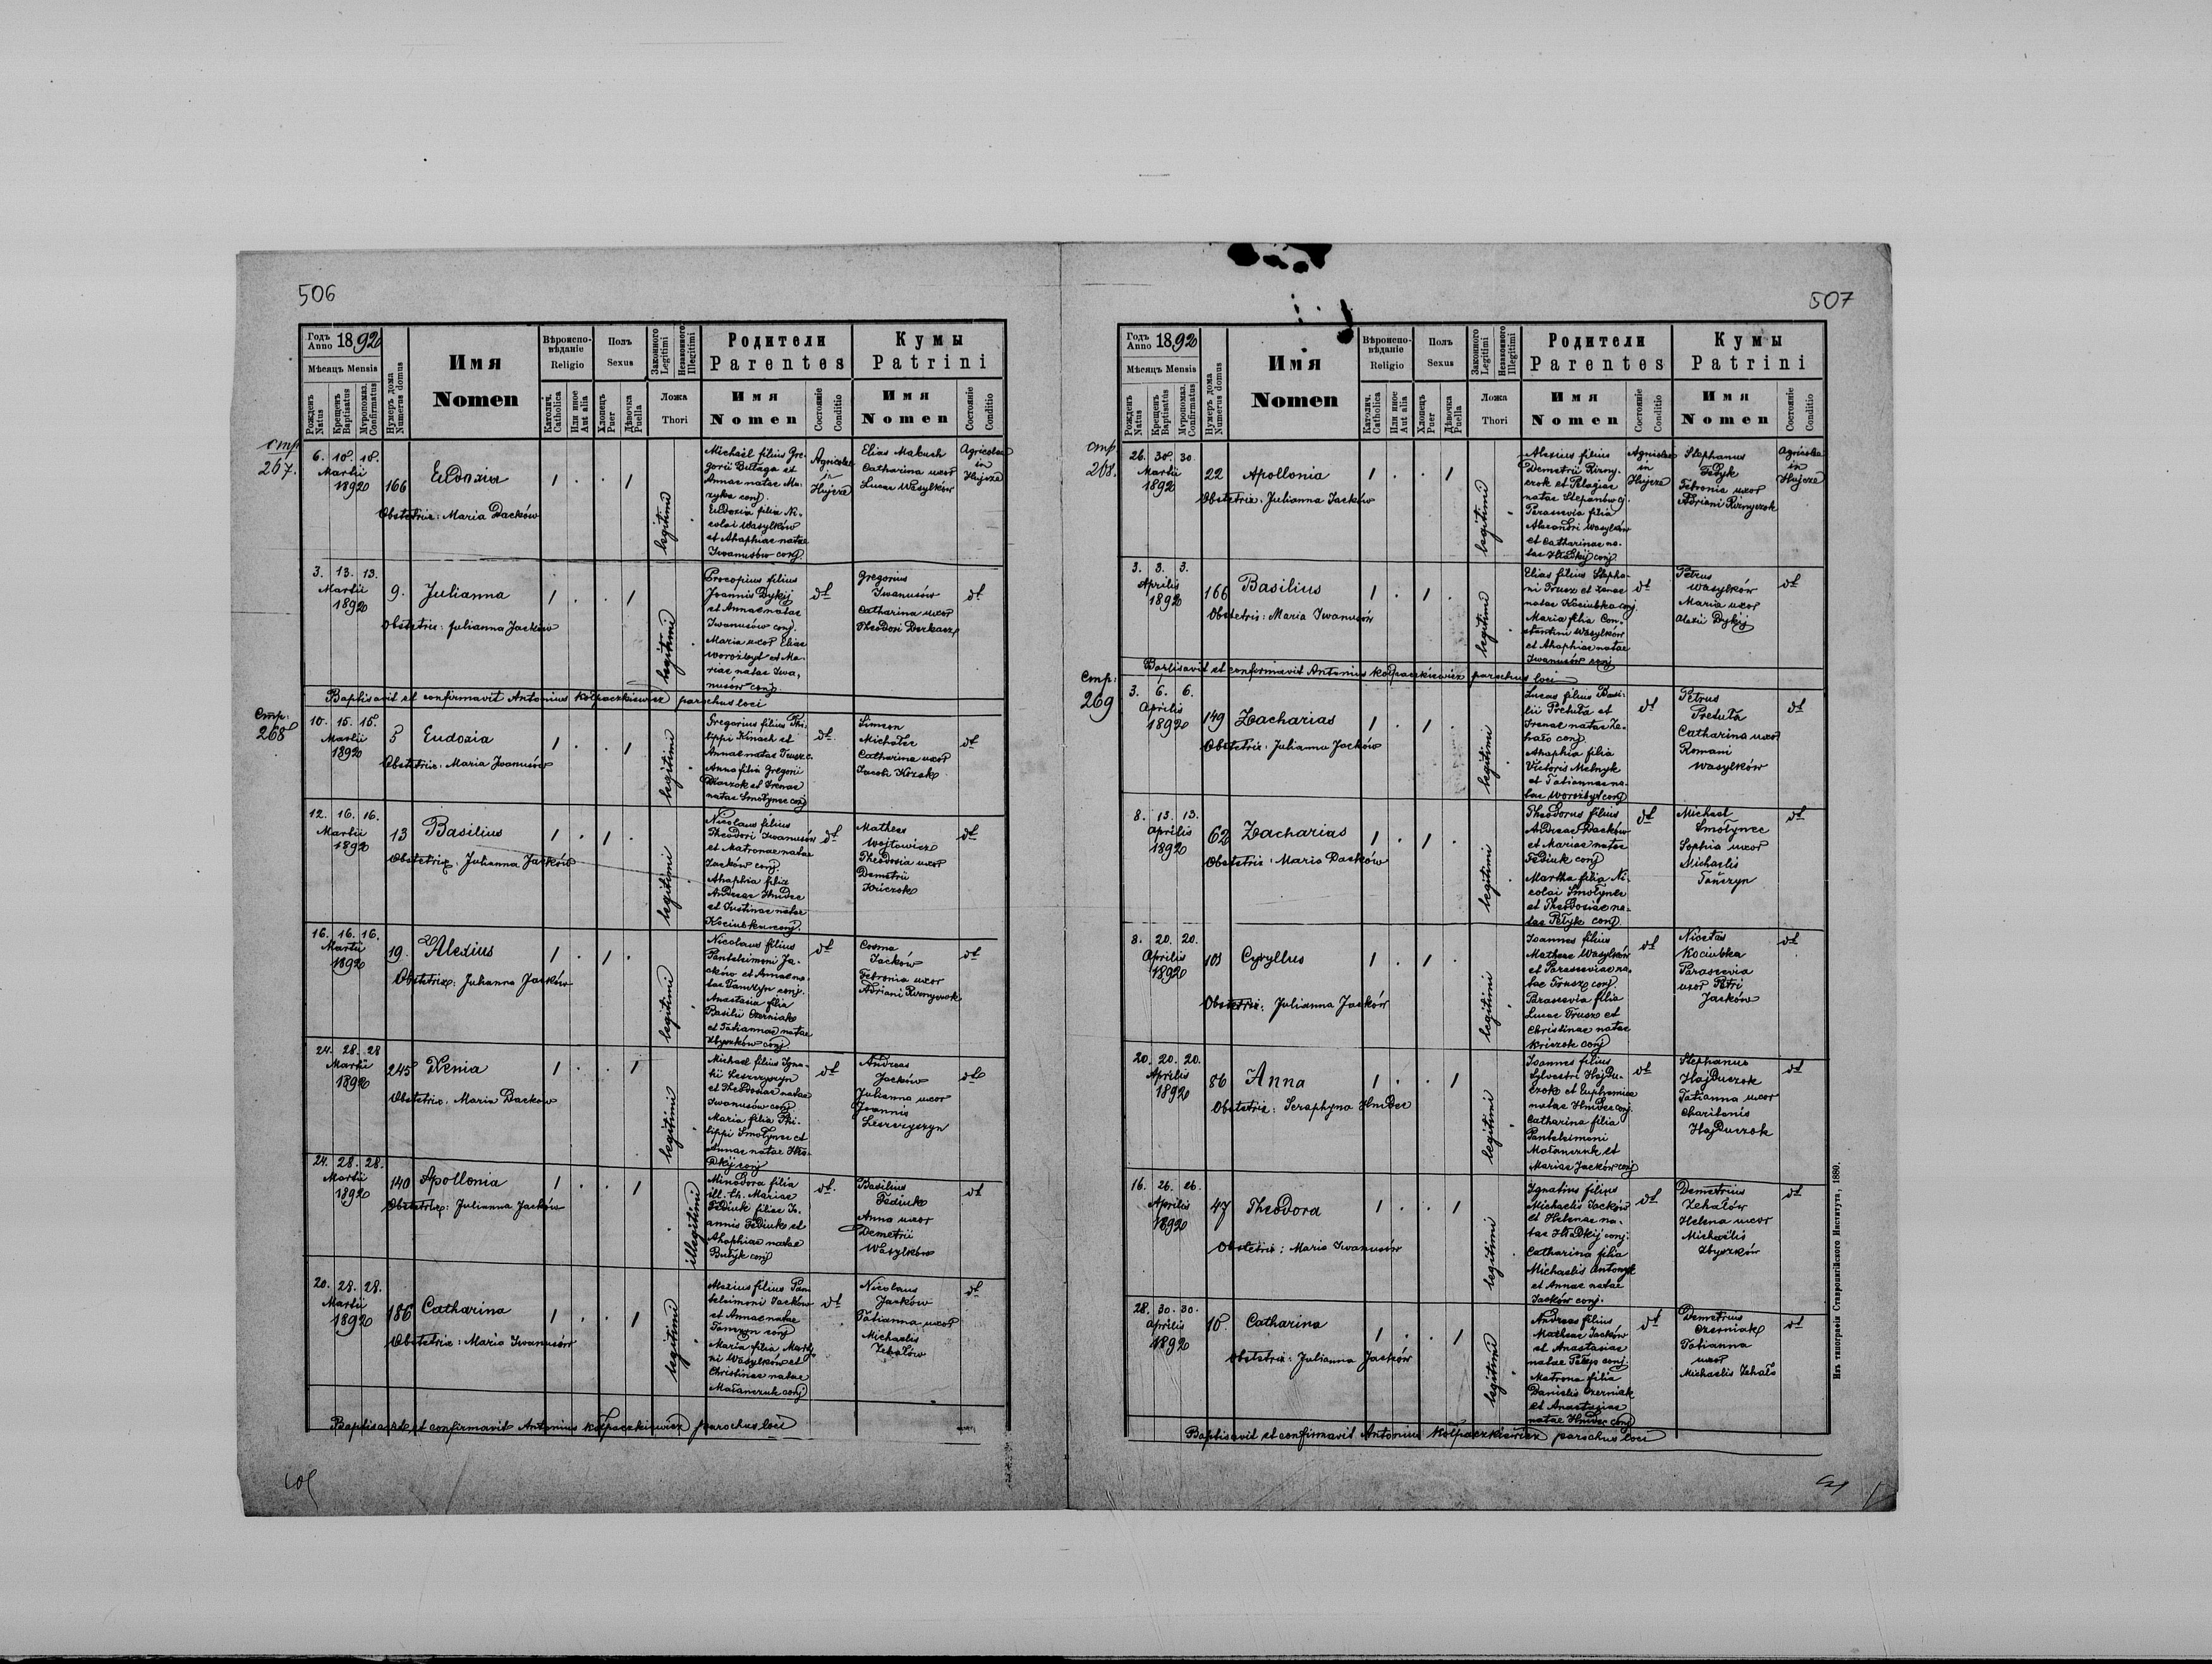 506
Годъ Anno 1892
Мѣсяцъ Mensis
Рожденъ Natus
Крещенъ Baptisatus
Муропомаз. Confirmatus
Нумеръ дома Numerus domus
Имя
Nomen
Вѣроиспо-
вѣданіе
Religio
Католич. Catholica
Или иное Aut alia
Полъ
Sexus
Хлопецъ Puer
Дѣвочка Puella
Законного Legitimi
Незаконного Illegitimi
Ложа
Thori
Родители
Parentes
Имя
Nomen
Состояніе
Conditio
Кумы
Patrini
Имя
Nomen
Состояніе
Conditio
стр.
267.
6. 18. 18.
Martii
1892
166
Eudoxia
1 . . 1
Obstetrix: Maria Dacków
legitimi
Michaël filius Gre-
gorii Butaga et
Annae natae Ma-
zyka conj.
Eudoxia filia Ni-
colai Wasylków
et Ahaphiae natae
Iwanusów conj.
Agricolae
in
Hujcze
Elias Makuch
Catharina uxor
Lucae Wasylków
Agricolae
in
Hujcze
3. 13. 13.
Martii
1892
9.
Julianna
1 . . 1
Obstetrix: Julianna Jacków
legitimi
Procopius filius
Joannis Dykij
et Annae natae
Iwanusów conj.
Maria uxor Eliae
Worożbyt et Ma-
riae natae Iwa-
nusów conj.
dt
Gregorius
Iwanusów
Catharina uxor
Theodori Derkacz
dt
Baptisavit et confirmavit Antonius Kołpaczkiewicz parochus loci
Стр:
268
10. 15. 15.
Martii
1892
5
Eudoxia
1 . . 1
Obstetrix: Maria Iwanusów
legitimi
Gregorius filius Phi-
lippi Kinach et
Annae natae Trusz c.
Anna filia Gregorii
Dżaczok et Irenae
natae Smołynec conj
dt.
Simeon
Michalec
Catharina uxor
Jacobi Kozak
dt
12. 16. 16.
Martii
1892
13
Basilius
1 . 1 .
Obstetrix: Julianna Jacków
legitimi
Nicolaus filius
Theodori Iwanusów
et Matronae natae
Jacków conj.
Ahaphia filia
Andreae Hnidec
et Justinae natae
Kociubka conj.
dt
Matheas
Wojtowicz
Theodosia uxor
Demetrii
Kriczok
dt
16. 16. 16.
Martii
1892
19.
Alexius
1 . 1 .
Obstetrix: Julianna Jacków
legitimi
Nicolaus filius
Panteleimoni Ja-
cków et Annae na-
tae Tanczyn conj.
Anastasia filia
Basilii Czerniak
et Tatiannae natae
Zbyszków conj.
dt
Cosma
Jacków
Fetronia uxor
Adriani Riznyczok
dt
24. 28. 28
Martii
1892
245
Xenia
1 . . 1
Obstetrix: Maria Dacków
legitimi
Michael filius Igna-
tii Leszczyszyn
et Theodosiae natae
Iwanusów conj
Maria filia Phi-
lippi Smołynec et
Annae natae Hła-
dkij conj
dt
Andreas
Jacków
Julianna uxor
Joannis
Leszczyszyn
dt
24. 28. 28.
Martii
1892
140
Apollonia
1 . . 1
Obstetrix: Julianna Jacków
. illegitimi
Minodora filia
ill. th. Mariae
Fediuk filiae Jo-
annis Fediuk et
Ahaphiae natae
Butyk conj
dt.
Basilius
Fediuk
Anna uxor
Demetrii
Wasylków
dt
20. 28. 28.
Martii
1892
186
Catharina
1 . . 1
Obstetrix: Maria Iwanusów
legitimi
Alexius filius Pan-
teleimoni Jacków
et Annae natae
Tanczyn conj
Maria filia Marty-
ni Wasylków et
Christinae natae
Małanczuk conj
dt
Nicolaus
Jacków
Tatianna uxor
Michaelis
Zehałów
dt
Baptisavit et confirmavit Antonius Kołpaczkiewicz parochus loci
507
Годъ Anno 1892
Мѣсяцъ Mensis
Рожденъ Natus
Крещенъ Baptisatus
Муропомаз. Confirmatus
Нумеръ дома Numerus domus
Имя
Nomen
Вѣроиспо-
вѣданіе
Religio
Католич. Catholica
Или иное Aut alia
Полъ
Sexus
Хлопецъ Puer
Дѣвочка Puella
Законного Legitimi
Незаконного Illegitimi
Ложа
Thori
Родители
Parentes
Имя
Nomen
Состояніе
Conditio
Кумы
Patrini
Имя
Nomen
Состояніе
Conditio
стр
268.
26. 30. 30.
Martii
1892
22
Apollonia
1 . . 1
Obstetrix: Julianna Jacków
legitimi
Alexius filius
Demetrii Rizny-
czok et Pelagiae
natae Stepanów cj.
Parascevia filia
Alexandri Wasylków
et Catharinae na-
tae Hładkij conj
Agricolae
in
Hujcze
Stephanus
Fedyk
Fetronia uxor
Adriani Riznyczok
Agricolae
in
Hujcze
3. 3. 3.
Aprilis
1892
166
Basilius
1 . 1 .
Obstetrix: Maria Iwanusów
legitimi
Elias filius Stepha-
ni Trusz et Xenae
natae Kociubka conj
Maria filia Con-
stantini Wasylków
et Ahaphiae natae
Iwanusów conj
dt
Petrus
Wasylków
Maria uxor
Alexii Dykij
dt
Baptisavit et confirmavit Antonius Kołpaczkiewicz parochus loci
Стр:
269
3. 6. 6.
Aprilis
1892
149
Zacharias
1 . 1 .
Obstetrix: Julianna Jacków
legitimi
Lucas filius Basi-
lii Pretuła et
Irenae natae Ze-
hało conj
Ahaphia filia
Victoris Melnyk
et Tatiannae na-
tae Worożbyt conj
dt
Petrus
Pretuła
Catharina uxor
Romani
Wasylków
dt
8. 13. 13.
Aprilis
1892
62
Zacharias
1 . 1 .
Obstetrix: Maria Dacków
legitimi
Theodorus filius
Andreae Dacków
et Mariae natae
Fediuk conj
Martha filia Ni-
colai Smołynec
et Theodosiae na-
tae Pełyk conj
dt
Michael
Smołynec
Sophia uxor
Michaelis
Tańczyn
dt
8. 20. 20.
Aprilis
1892
103
Cyryllus
1 . 1 .
Obstetrix: Julianna Jacków
legitimi
Joannes filius
Matheae Wasylków
et Parasceviae na-
tae Trusz conj
Parascevia filia
Lucae Trusz et
Christinae natae
Kriczok conj
dt
Nicetas
Kociubka
Parascevia
uxor Petri
Jacków
dt
20. 20. 20.
Aprilis
1892
86
Anna
1 . . 1
Obstetrix: Seraphyna Hnidec
legitimi
Joannes filius
Sylvestri Hajdu-
czok et Euphemiae
natae Hnidec conj.
Catharina filia
Panteleimoni
Małanczuk et
Mariae Jacków conj
dt
Stephanus
Hajduczok
Tatianna uxor
Charitonis
Hajduczok
dt
16. 26. 26.
Aprilis
1892
47
Theodora
1 . . 1
Obstetrix: Maria Iwanusów
legitimi
Ignatius filius
Michaelis Jacków
et Helenae na-
tae Hładkij conj.
Catharina filia
Michaelis Antonyk
et Annae natae
Jacków conj.
dt
Demetrius
Zehałów
Helena uxor
Michaëlis
Zbyszków
dt
28. 30. 30.
Aprilis
1892
10.
Catharina
1 . . 1
Obstetrix: Julianna Jacków
legitimi
Andreas filius
Matheae Jacków
et Anastasiae
natae Pełep conj
Matrona filia
Danielis Czerniak
et Anastasiae
natae Hnidec conj
dt
Demetrius
Czerniak
Tatianna
uxor
Michaelis Zehało
dt
Baptisavit et confirmavit Antonius Kołpaczkiewicz parochus loci
Изъ типографіи Ставропигійского Института, 1880.